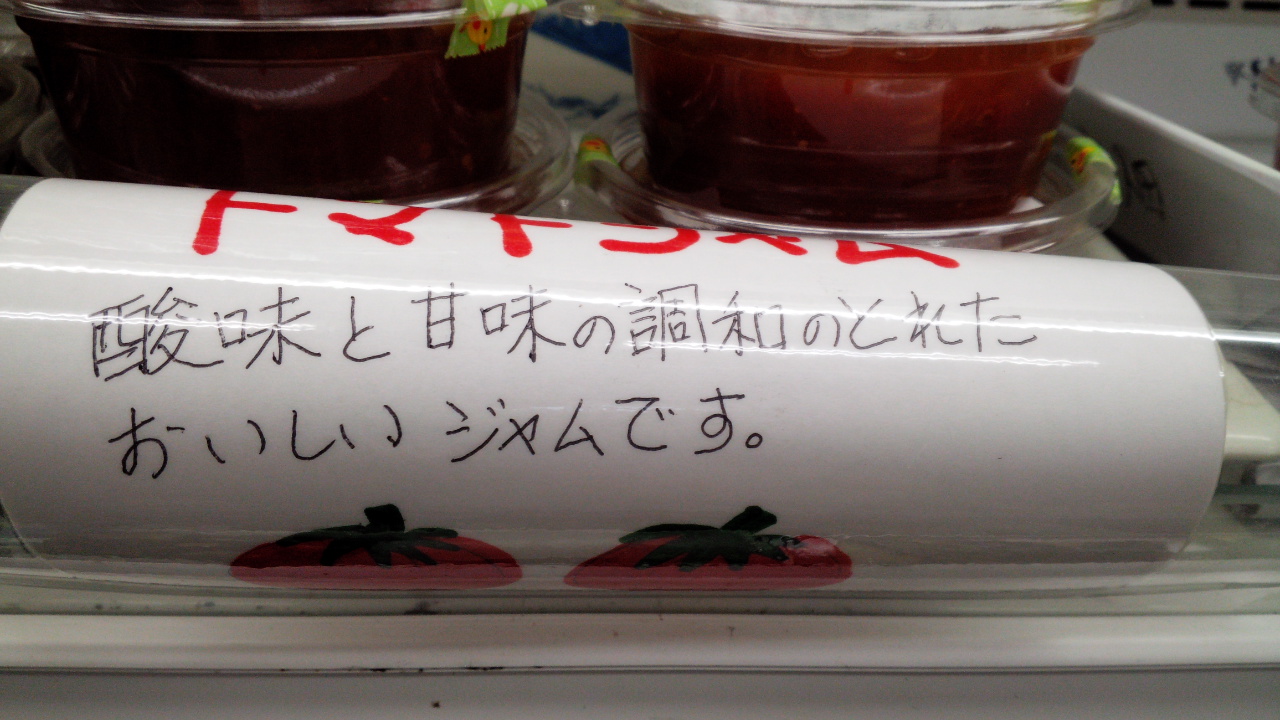 トマトジャム
酸味と甘味の調和のとれた
おいしいジャムです。